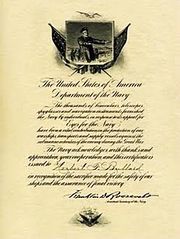 The United States of America
Department of the Navy
The thousands of binoculars, telescopes,
spyglasses and navigation instruments furnished
the Navy by individuals, in response to its appeal for
Eyes for the Navy
have been a vital contribution in the protection of our
warships, transports and supply vessels against the
submarine activities of the enemy during the Great War
The Navy acknowledges with thanks and
appreciation, your cooperation and this certificate is
issued to Herbert
in recognition of the sacrifice made for the safety of our
ships and the assurance of final victory.
Franklin D Roosevelt
Assistant Secretary of the Navy